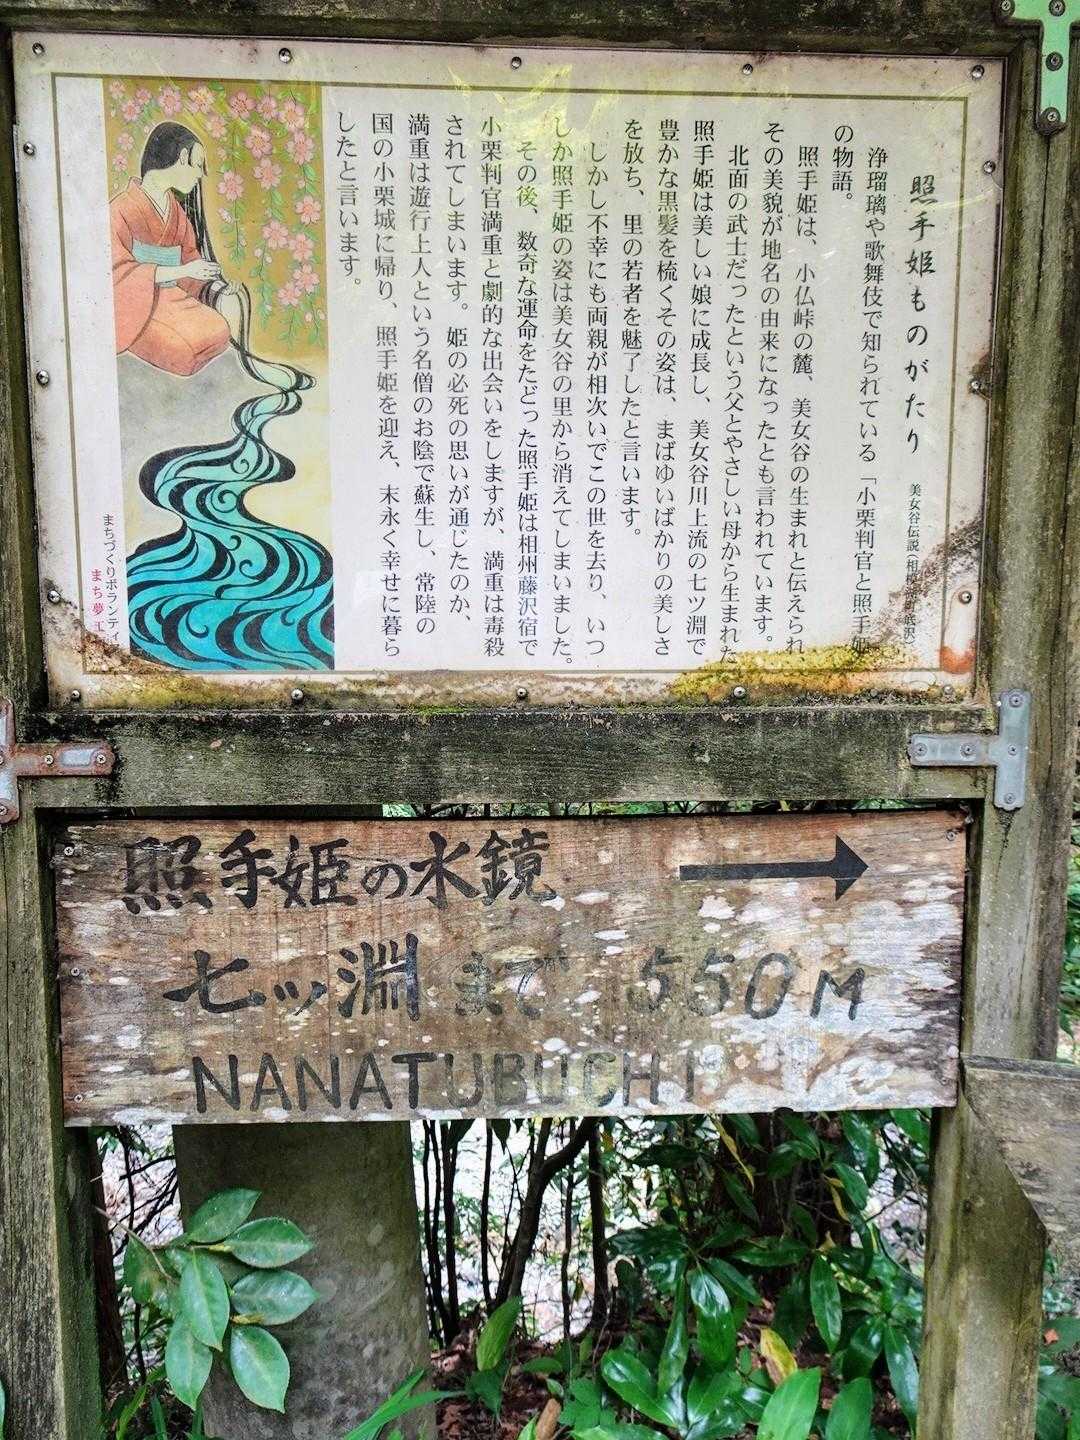 照手姫ものがたり
美女谷伝説(相模湖町底沢)
浄瑠璃や歌舞伎で知られている「小栗判官と照手姫
の物語。
照手姫は、小仏峠の麓、美女谷の生まれと伝えられ、
その美貌が地名の由来になったとも言われています。
北面の武士だったという父とやさしい母から生まれた
照手姫は美しい娘に成長し、美女谷川上流の七ツ淵で
豊かな黒髪を梳くその姿は、まばゆいばかりの美しさ
を放ち、里の若者を魅了したと言います。
しかし不幸にも両親が相次いでこの世を去り、いつ
しか照手姫の姿は美女谷の里から消えてしまいました。
その後、数奇な運命をたどった照手姫は相州藤沢宿で
小栗判官満重と劇的な出会いをしますが、満重は毒殺
されてしまいます。姫の必死の思いが通じたのか、
満重は遊行上人という名僧のお陰で蘇生し、常陸の
国の小栗城に帰り、照手姫を迎え、末永く幸せに暮ら
したと言います。
まちづくりボランティ
まち夢工
照手姫の水鏡
七ッ淵まで 550M
NANATUBUCHI